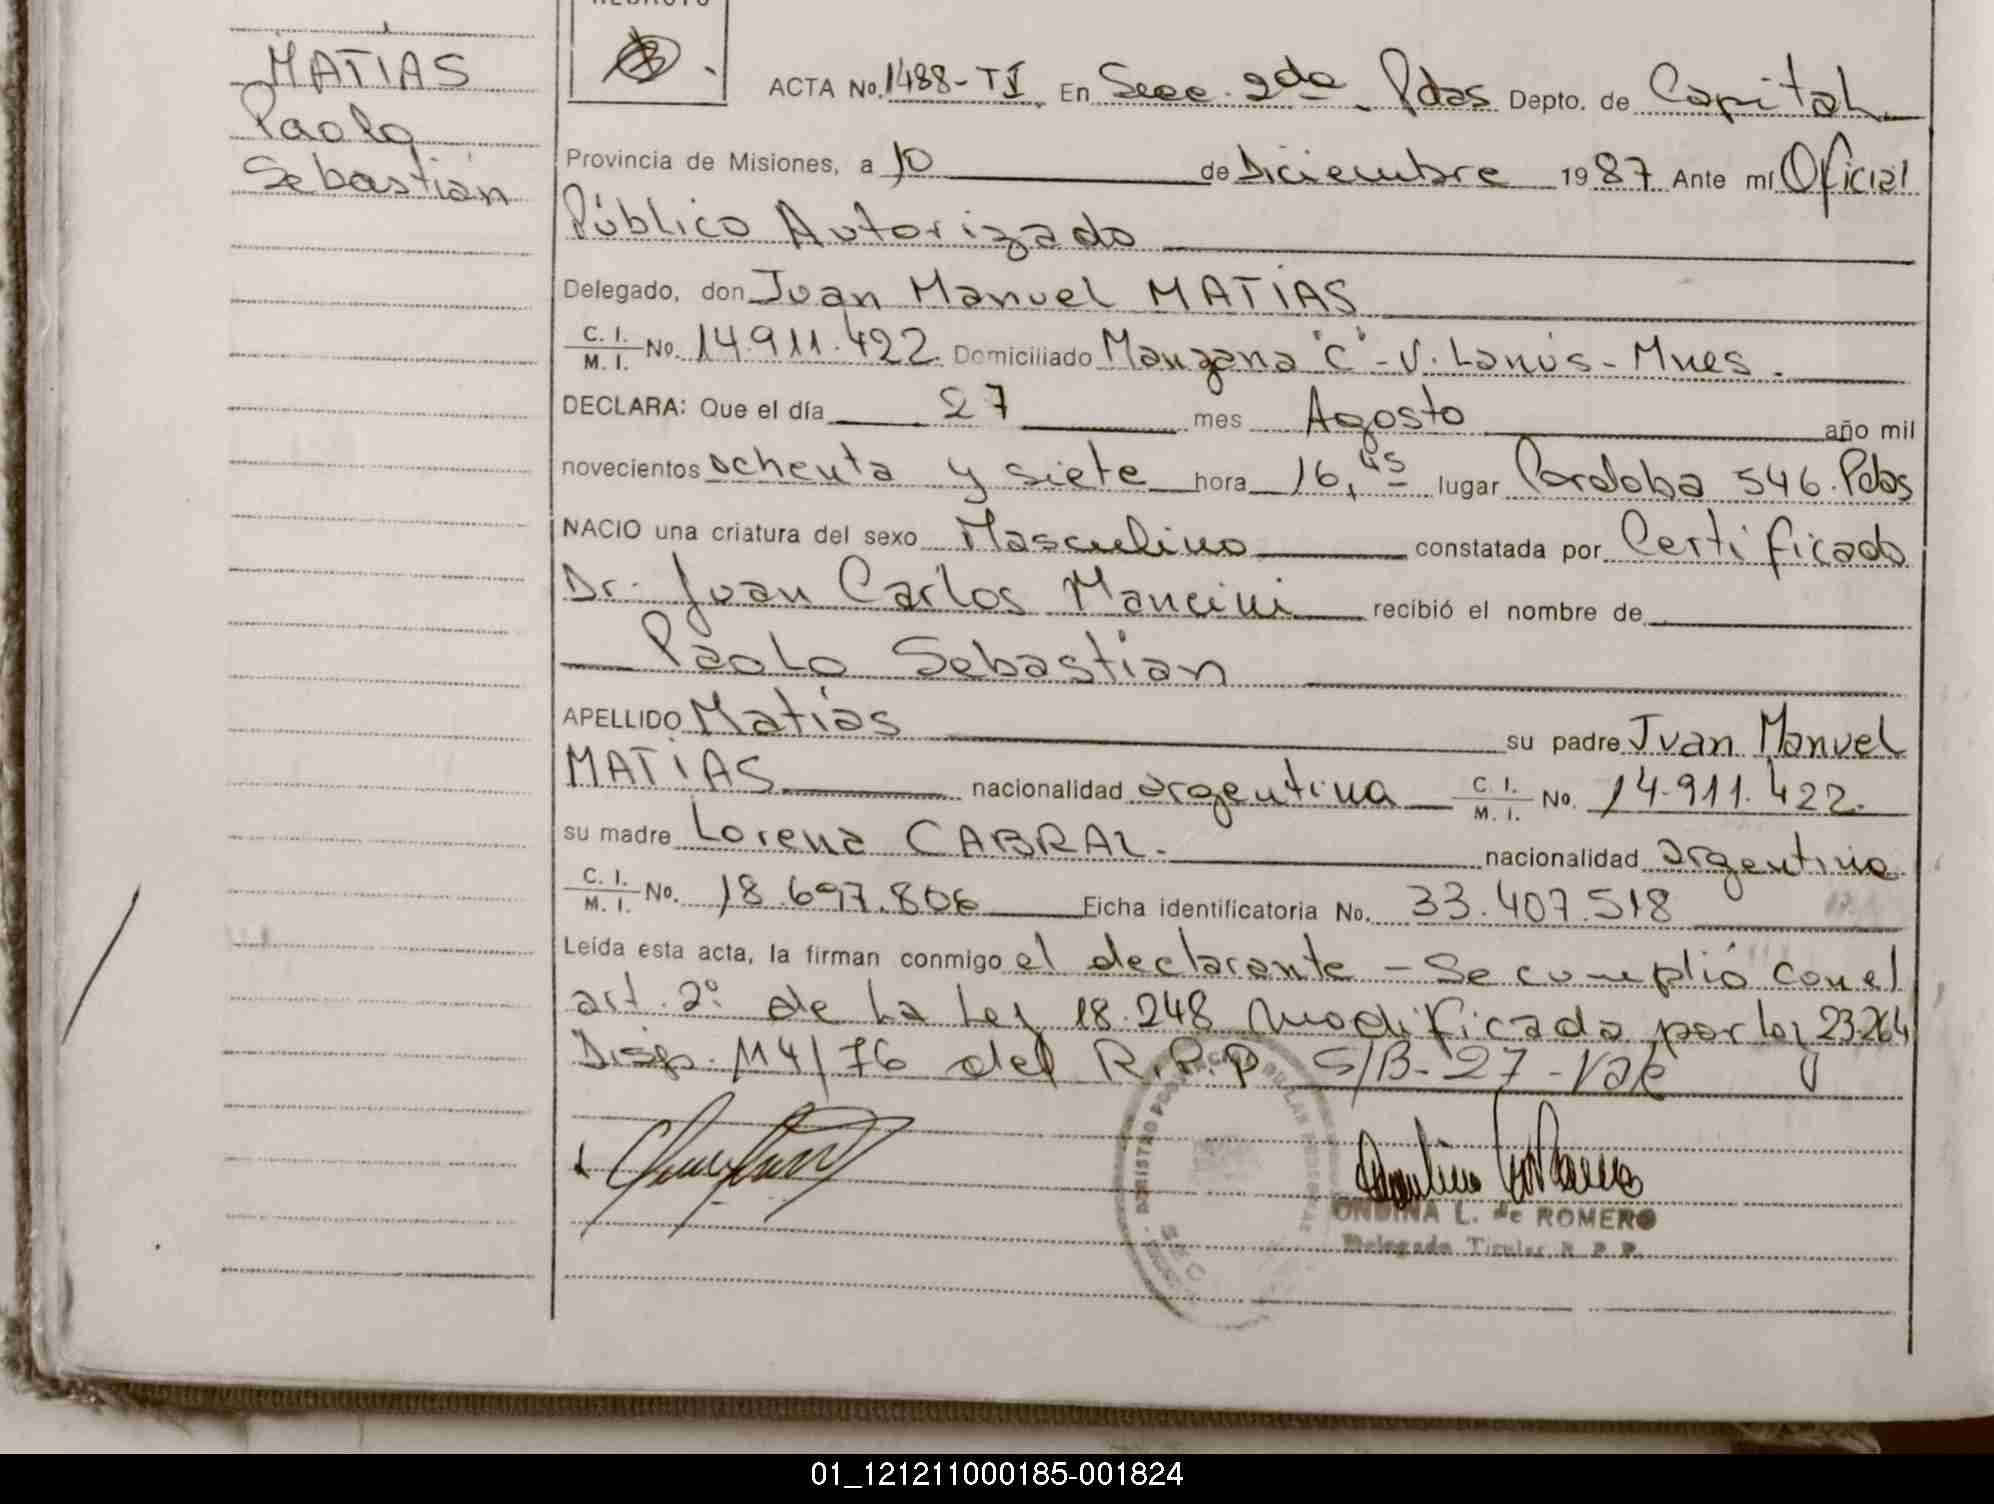 MATIAS
Paolo
Sebastián
ACTA No. 1488-TI En Secc. 2da Pdas Depto. de Capital
Provincia de Misiones, a 10 de Diciembre 1987 Ante mí Oficial
Público Autorizado
Delegado, don Juan Manuel MATIAS
C. I. / M. I. No. 14.911.422. Domiciliado Manzana "C" - V. Lanús - Mnes.
DECLARA: Que el día 27 mes Agosto año mil
novecientos ochenta y siete hora 16,45 lugar Cordoba 546. Pdas
NACIO una criatura del sexo Masculino constatada por Certificado
Dr. Juan Carlos Mancini recibió el nombre de
Paolo Sebastian
APELLIDO Matías su padre Juan Manuel
MATIAS nacionalidad argentina C. I. / M. I. No. 14.911.422.
su madre Lorena CABRAL. nacionalidad argentina
C. I. / M. I. No. 18.697.806 Ficha identificatoria No. 33.407.518
Leída esta acta, la firman conmigo el declarante - Se cumplió con el
art. 2º de la Ley 18.248 modificada por ley 23.264
Disp. 114/76 del R.P.P. S/B-27-Vale
ONDINA L. de ROMERO
Delegada Titular R. P. P.
01_121211000185-001824